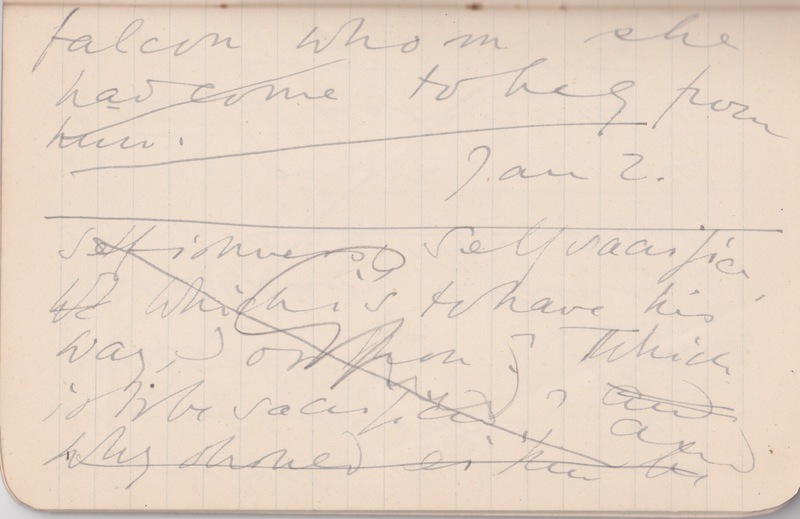 falcon whom she
had come to beg from
him.
Jan 2.
Self Self sacrifice,
which is to have his
way, or ? Which
is to be sacrificed? and
why should either be